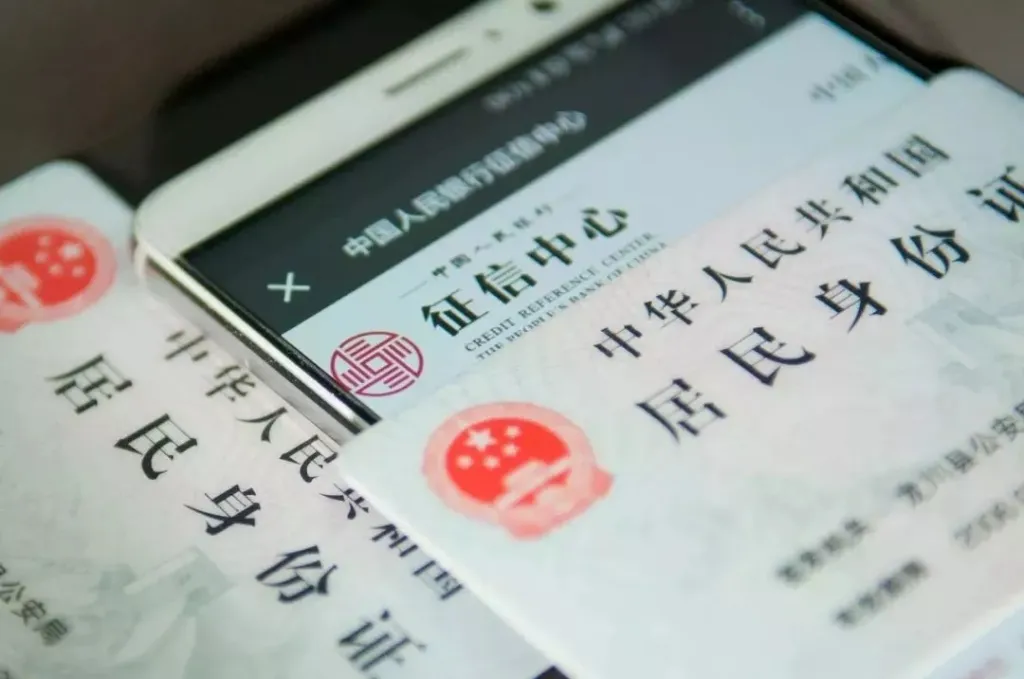 中国人民银行征信中心
中国人民银行
征信中心
CREDIT REFERENCE CENTER
THE PEOPLE'S BANK OF CHINA
中华人民共和国
居民身份证
签发机关 龙川县公安局
有效期限
中华人民共和国
居民身份证
公安局